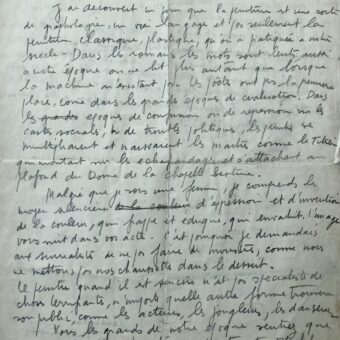 J'ai découvert un jour que la peinture est une sorte
de psychologie, un vrai langage et pas seulement la
peinture classique, plastique, qu'on a pratiquée à notre
siècle. Dans les romans les mots sont lents aussi
à notre époque on ne lit plus autant que lorsque
la machine n'existait pas. Les poètes ont pris la première
place, come dans les grandes époques de civilisation. Dans
les époques de confusion ou de repression sur les
castes sociales, de troubles politiques, les peintres se
multiplierent et naissaient les maîtres comme le Titien
qui montait sur les echafaudages et s'attachait au
plafond du Dome de la chapelle Sixtine.
Malgré que je sois une femme, je comprends le
moyen silencieux d'expression et d'invention
de la couleur, qui frappe et eduque, qui envahit. L'image
vous suit dans vos actes. C'est pourquoi je demandais
aux surrealistes de ne pas faire de monstres, comme nous
ne mettons pas nos chaussures dans le dessert.
Le peintre quand il est sincère n'est pas spécialiste de
choses, n'importe quelle autre forme trouvera
son public, comme les acteurs, les jongleurs, les danseurs.
Vous les grands de notre époque sentez que